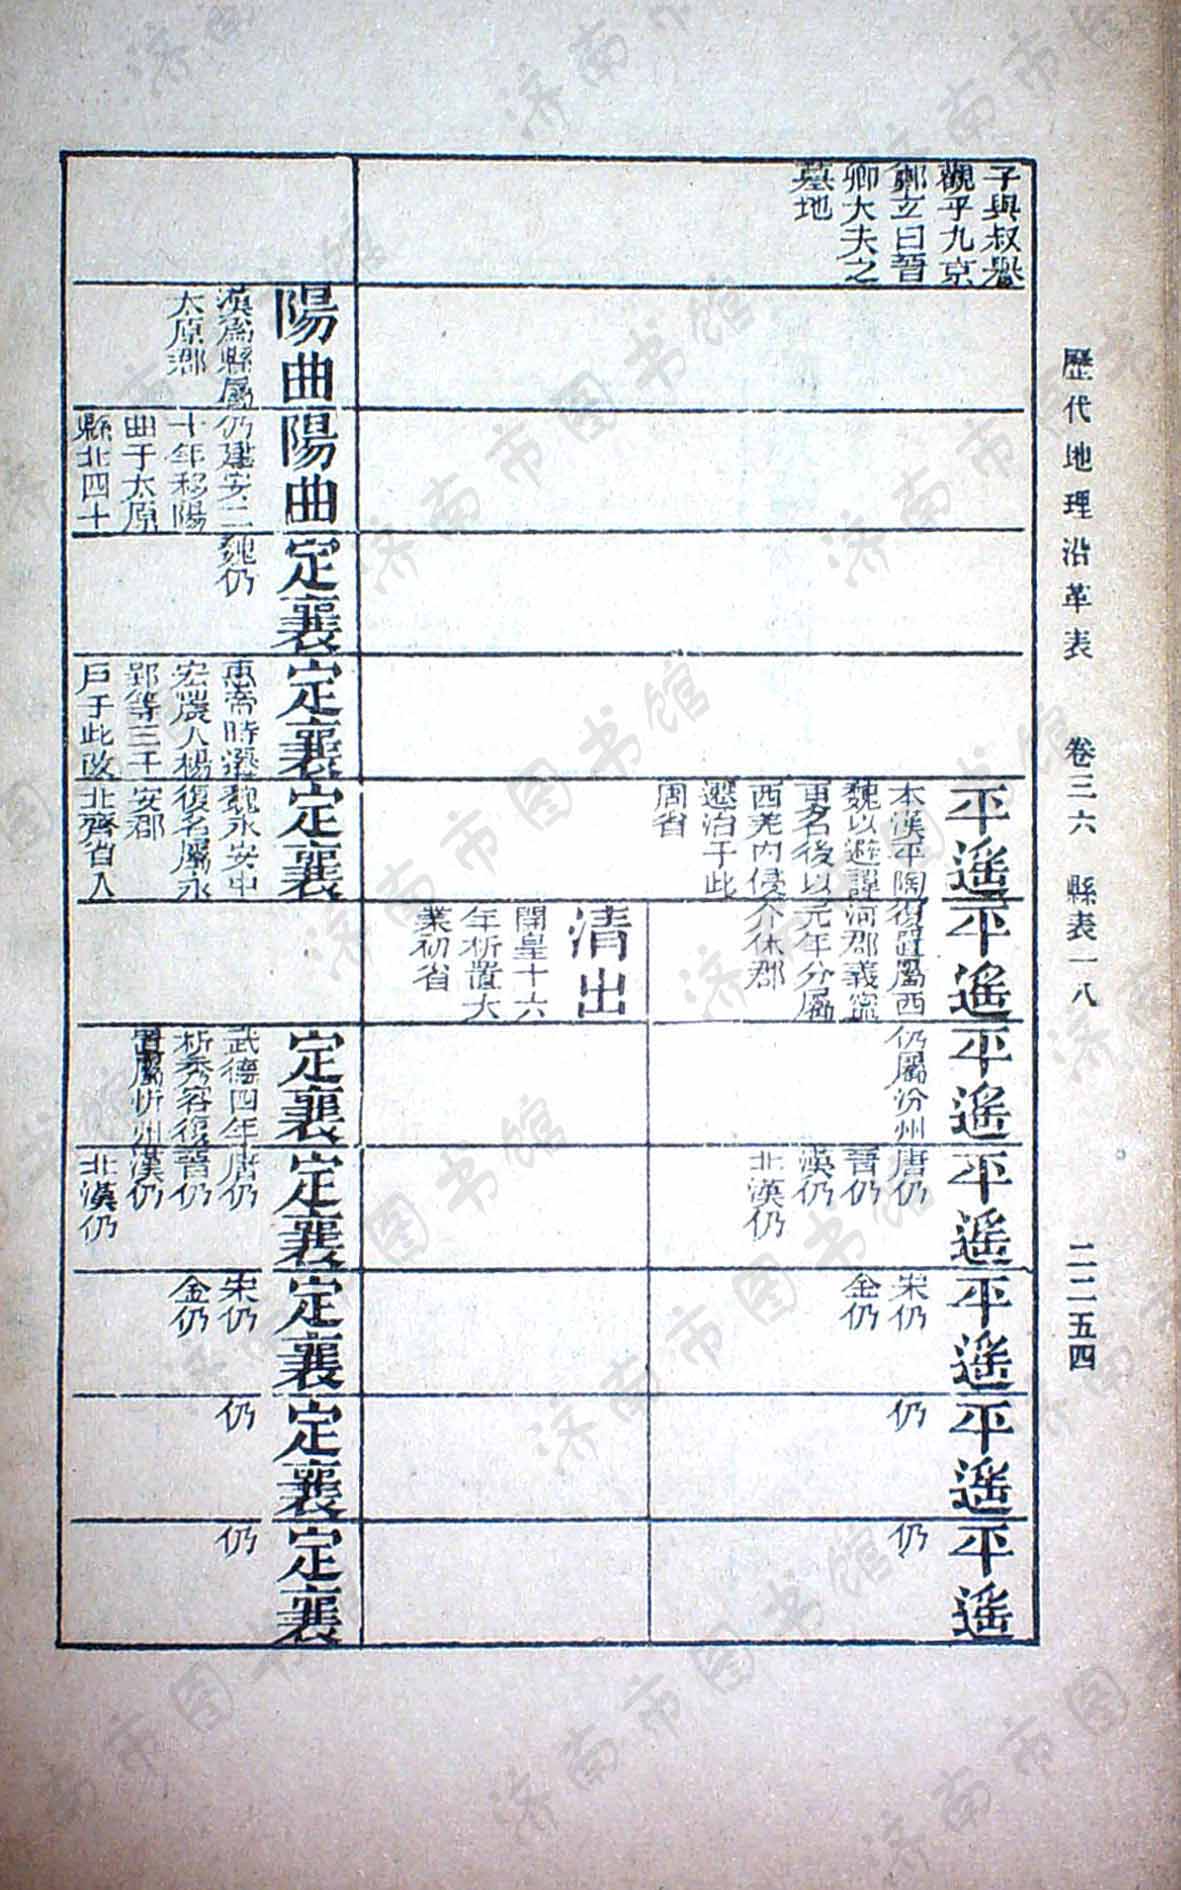 歷代地理沿革表　卷三六　縣表一八　二二五四
子與叔譽
觀乎九京
鄭玄曰晉
卿大夫之
墓地
平遙
本漢平陶
魏以避諱
更名後以
西羌內侵
遷治于此
周省
平遙
復置屬西
河郡義寧
元年分屬
介休郡
平遙
仍屬汾州
平遙
唐仍
晉仍
漢仍
北漢仍
平遙
宋仍
金仍
平遙
仍
平遙
仍
清出
開皇十六
年析置大
業初省
陽曲
漢爲縣屬
太原郡
陽曲
仍建安二
十年移陽
曲于太原
縣北四十
定襄
魏仍
定襄
惠帝時
宏農人楊
郢等三千
戶于此改
定襄
魏永安中
復名屬永
安郡
北齊省入
定襄
武德四年
析秀容復
置屬忻州
定襄
唐仍
晉仍
漢仍
北漢仍
定襄
宋仍
金仍
定襄
仍
定襄
仍
济南市图书馆